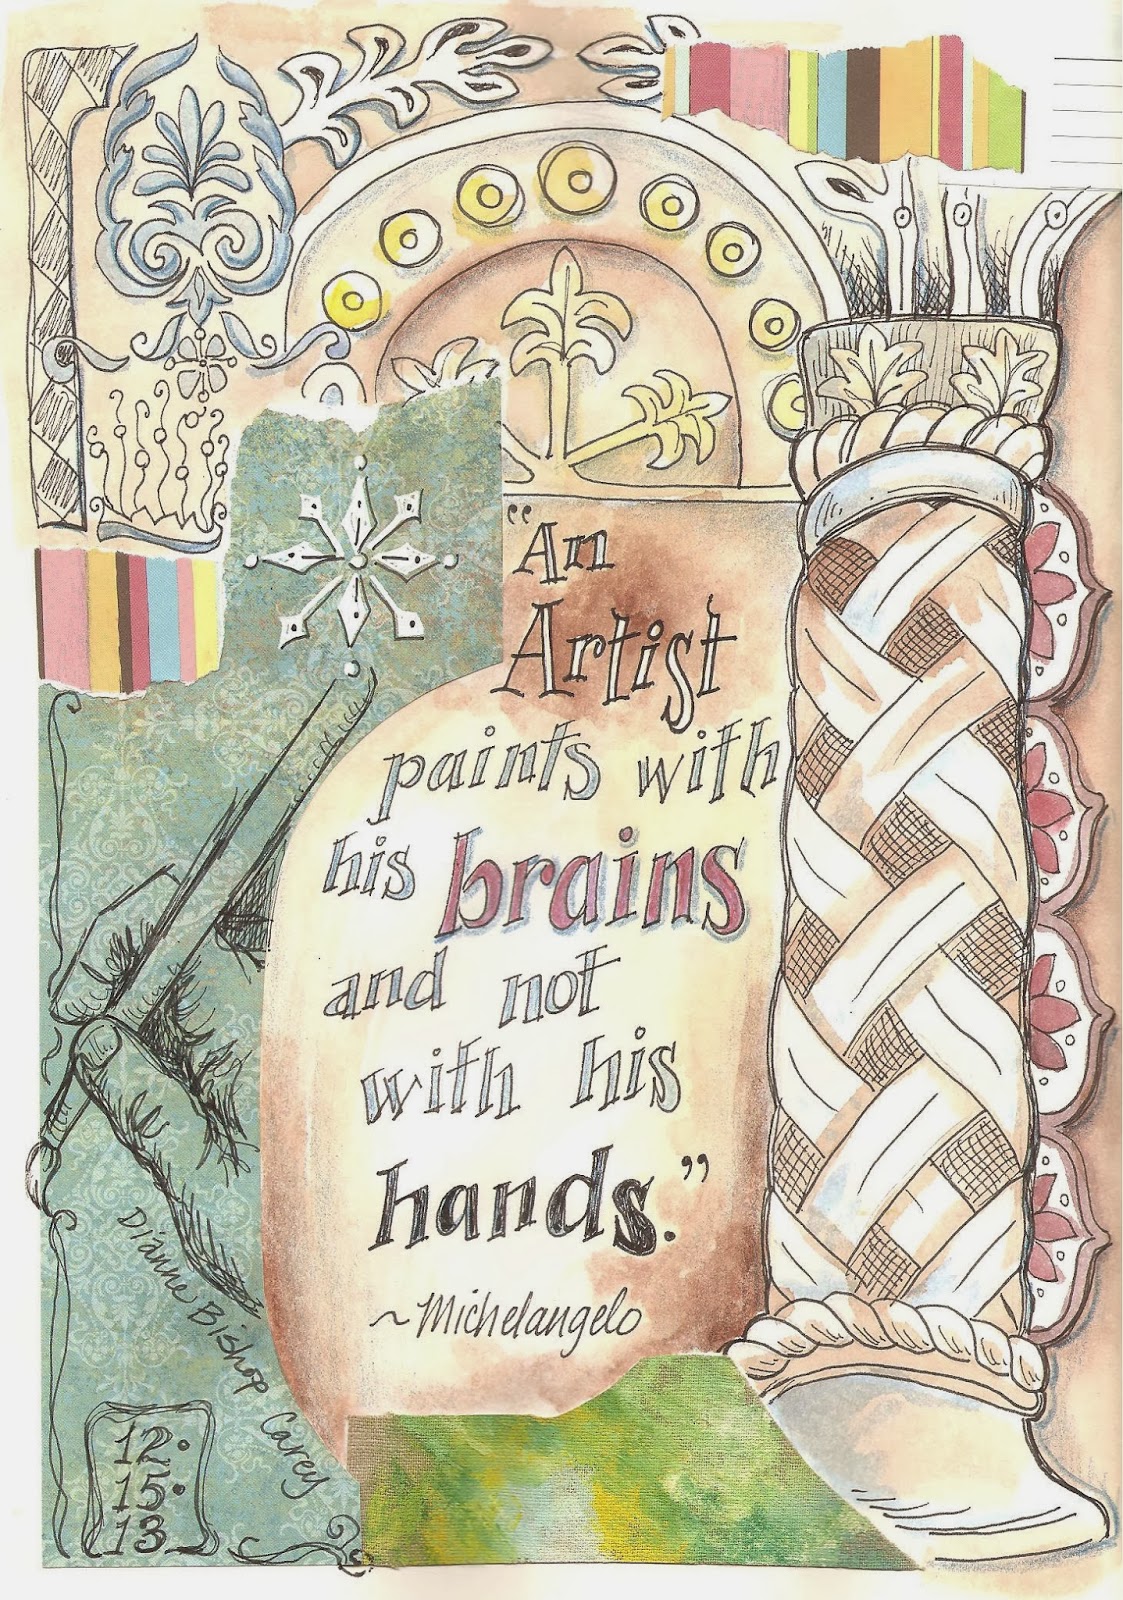 "An
Artist
paints with
his brains
and not
with his
hands."
~Michelangelo
Dianne Bishop Carey
12.
15.
13